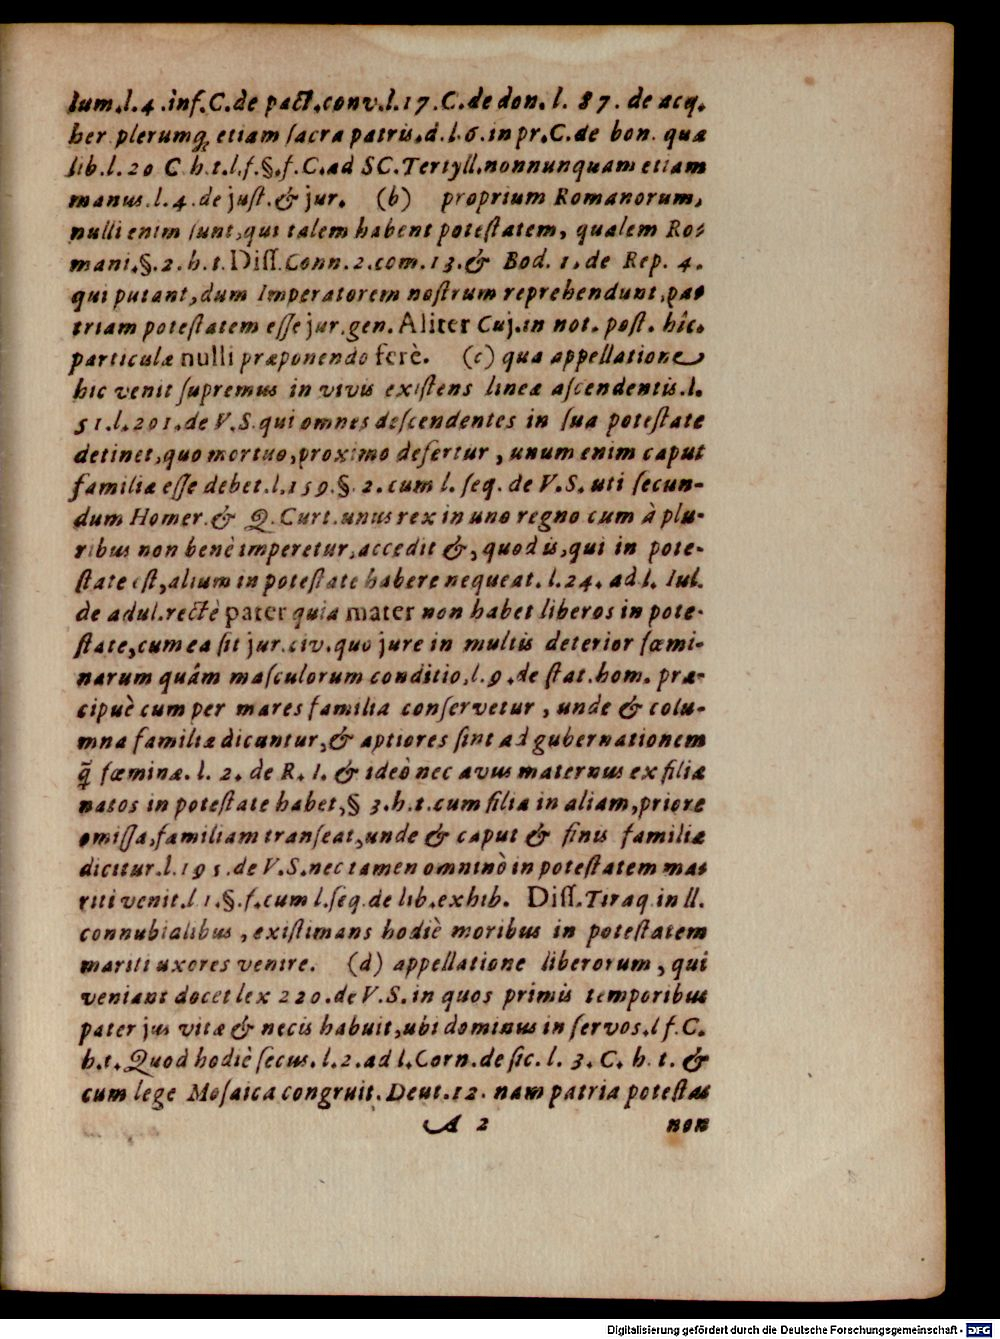 lum.l.4.inf.C.de pact.conv.l.17.C.de don.l. 87. de acq.
her plerumq; etiam ſacra patris.d.l.6.in pr.C.de bon. quæ
lib.l.20 C h.t.l.f.§.f.C.ad SC.Tertyll.nonnunquam etiam
manus.l.4.de juſt.& jur. (b) proprium Romanorum,
nulli enim ſunt,qui talem habent poteſtatem, qualem Ro-
mani.§.2.h.t.Diſſ.Conn.2.com.13.& Bod. 1.de Rep. 4.
qui putant,dum Imperatorem noſtrum reprehendunt,pa-
triam poteſtatem eſſe jur.gen. Aliter Cuj.in not.poſt. hîc.
particulæ nulli præponendo ferè. (c) qua appellatione
hic venit ſupremus in vivis exiſtens lineæ aſcendentis.l.
51.l.201.de V.S.qui omnes deſcendentes in ſua poteſtate
detinet,quo mortuo,proximo defertur, unum enim caput
familiæ eſſe debet.l.159.§.2.cum l. ſeq. de V.S. uti ſecun-
dum Homer.& Q. Curt.unus rex in uno regno cum à plu-
ribus non benè imperetur,accedit &,quod is,qui in pote-
ſtate eſt,alium in poteſtate habere nequeat. l.24. ad l. Iul.
de adul.rectè pater quia mater non habet liberos in pote-
ſtate,cum ea ſit jur.civ.quo jure in multis deterior fœmi-
narum quâm maſculorum conditio,l.9.de ſtat.hom. præ-
cipuè cum per mares familia conſervetur, unde & colu-
mna familiæ dicantur,& aptiores ſint ad gubernationem
q̃ fœminæ. l. 2. de R. I. & ideò nec avus maternus ex filiæ
natos in poteſtate habet,§ 3.h.t.cum filia in aliam,priore
omiſſa,familiam tranſeat,unde & caput & finis familiæ
dicitur.l.195.de V.S.nec tamen omninò in poteſtatem ma-
riti venit.l 1.§.f.cum l.ſeq.de lib.exhib. Diſſ.Tiraq.in ll.
connubialibus, exiſtimans hodiè moribus in poteſtatem
mariti uxores venire. (d) appellatione liberorum, qui
veniant docet lex 220.de V.S.in quos primis temporibus
pater jus vitæ & necis habuit,ubi dominus in ſervos.l f.C.
h.t. Quod hodiè ſecus.l.2.ad l.Corn.de ſic.l. 3. C. h. t. &
cum lege Moſaica congruit. Deut.12. nam patria poteſtas
A 2 non
Digitalisierung gefördert durch die Deutsche Forschungsgemeinschaft - DFG